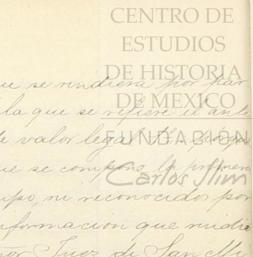 CENTRO DE
ESTUDIOS
DE HISTORIA
DE MEXICO
FUNDACIÓN
Carlos Slim
que se rindiera por par
la que se refiere el ante
de valor legal
ue se compone la primera
mpo, ni reconocidos por
nformacion que rindie
ñor Juez de San Mi